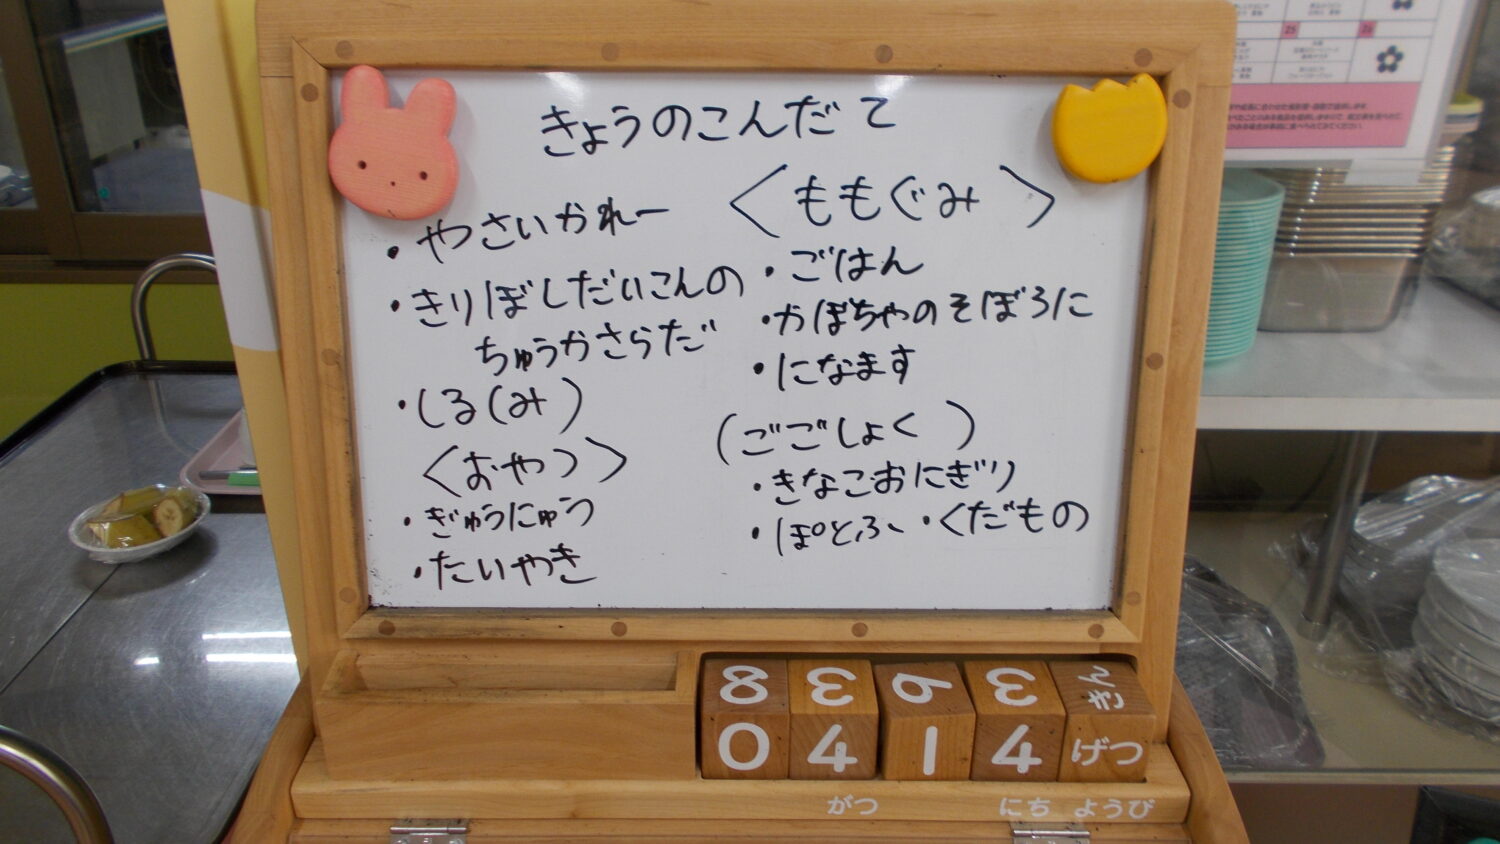 きょうのこんだて
・やさいかれー
・きりぼしだいこんの
ちゅうかさらだ
・しる(み)
〈おやつ〉
・ぎゅうにゅう
・たいやき
〈ももぐみ〉
・ごはん
・かぼちゃのそぼろに
・になます
(ごごしょく)
・きなこおにぎり
・ぽとふ、・くだもの
8 3 6 3 きん
0 4 1 4 げつ
がつ にち ようび